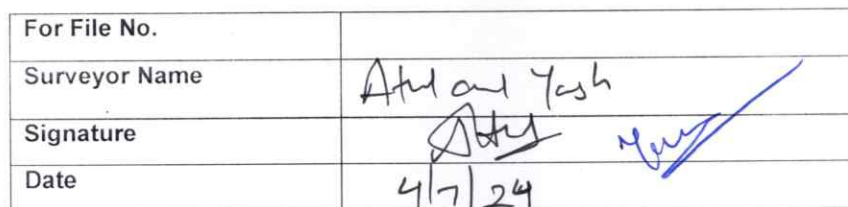 For File No.
Surveyor Name Atul and Yash
Signature Atul
Date 4/7/24